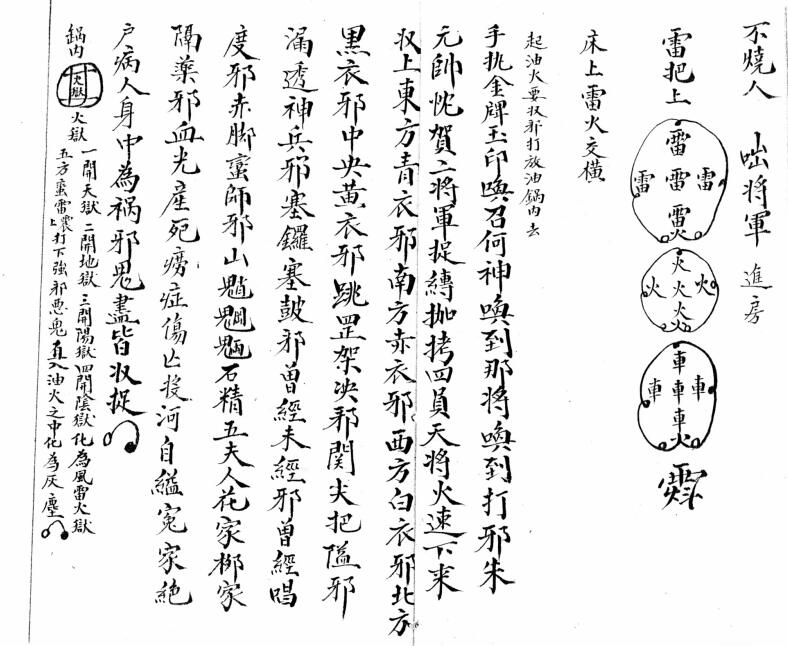 不燒人 𠮟將軍 進房
雷把上 雷 雷 雷 雷 火 火 火 火 火 火 車 車 車 車 車 火
床上雷火交橫
起油火要收邪打放油鍋内去
手执金牌玉印喚召何神喚到那将喚到打邪朱
元帥忱賀二将軍捉縛枷拷四員天将火速下来
収上東方青衣邪南方赤衣邪西方白衣邪北方
黒衣邪中央黄衣邪跳罡架决邪関夫把隘邪
漏透神兵邪塞鑼塞鼓邪曽經未經邪曽經唱
度邪赤脚蛮師邪山魈魍魎石精五夫人花家柳家
隔薬邪血光産死癆症傷亡投河自縊寃家絶
户病人身中為禍邪鬼盡皆収捉
鍋内 火獄 火獄 一開天獄二開地獄三開陽獄四開陰獄化為風雷火獄
五方蛮雷震打下強邪悪鬼直入油火之中化為灰塵